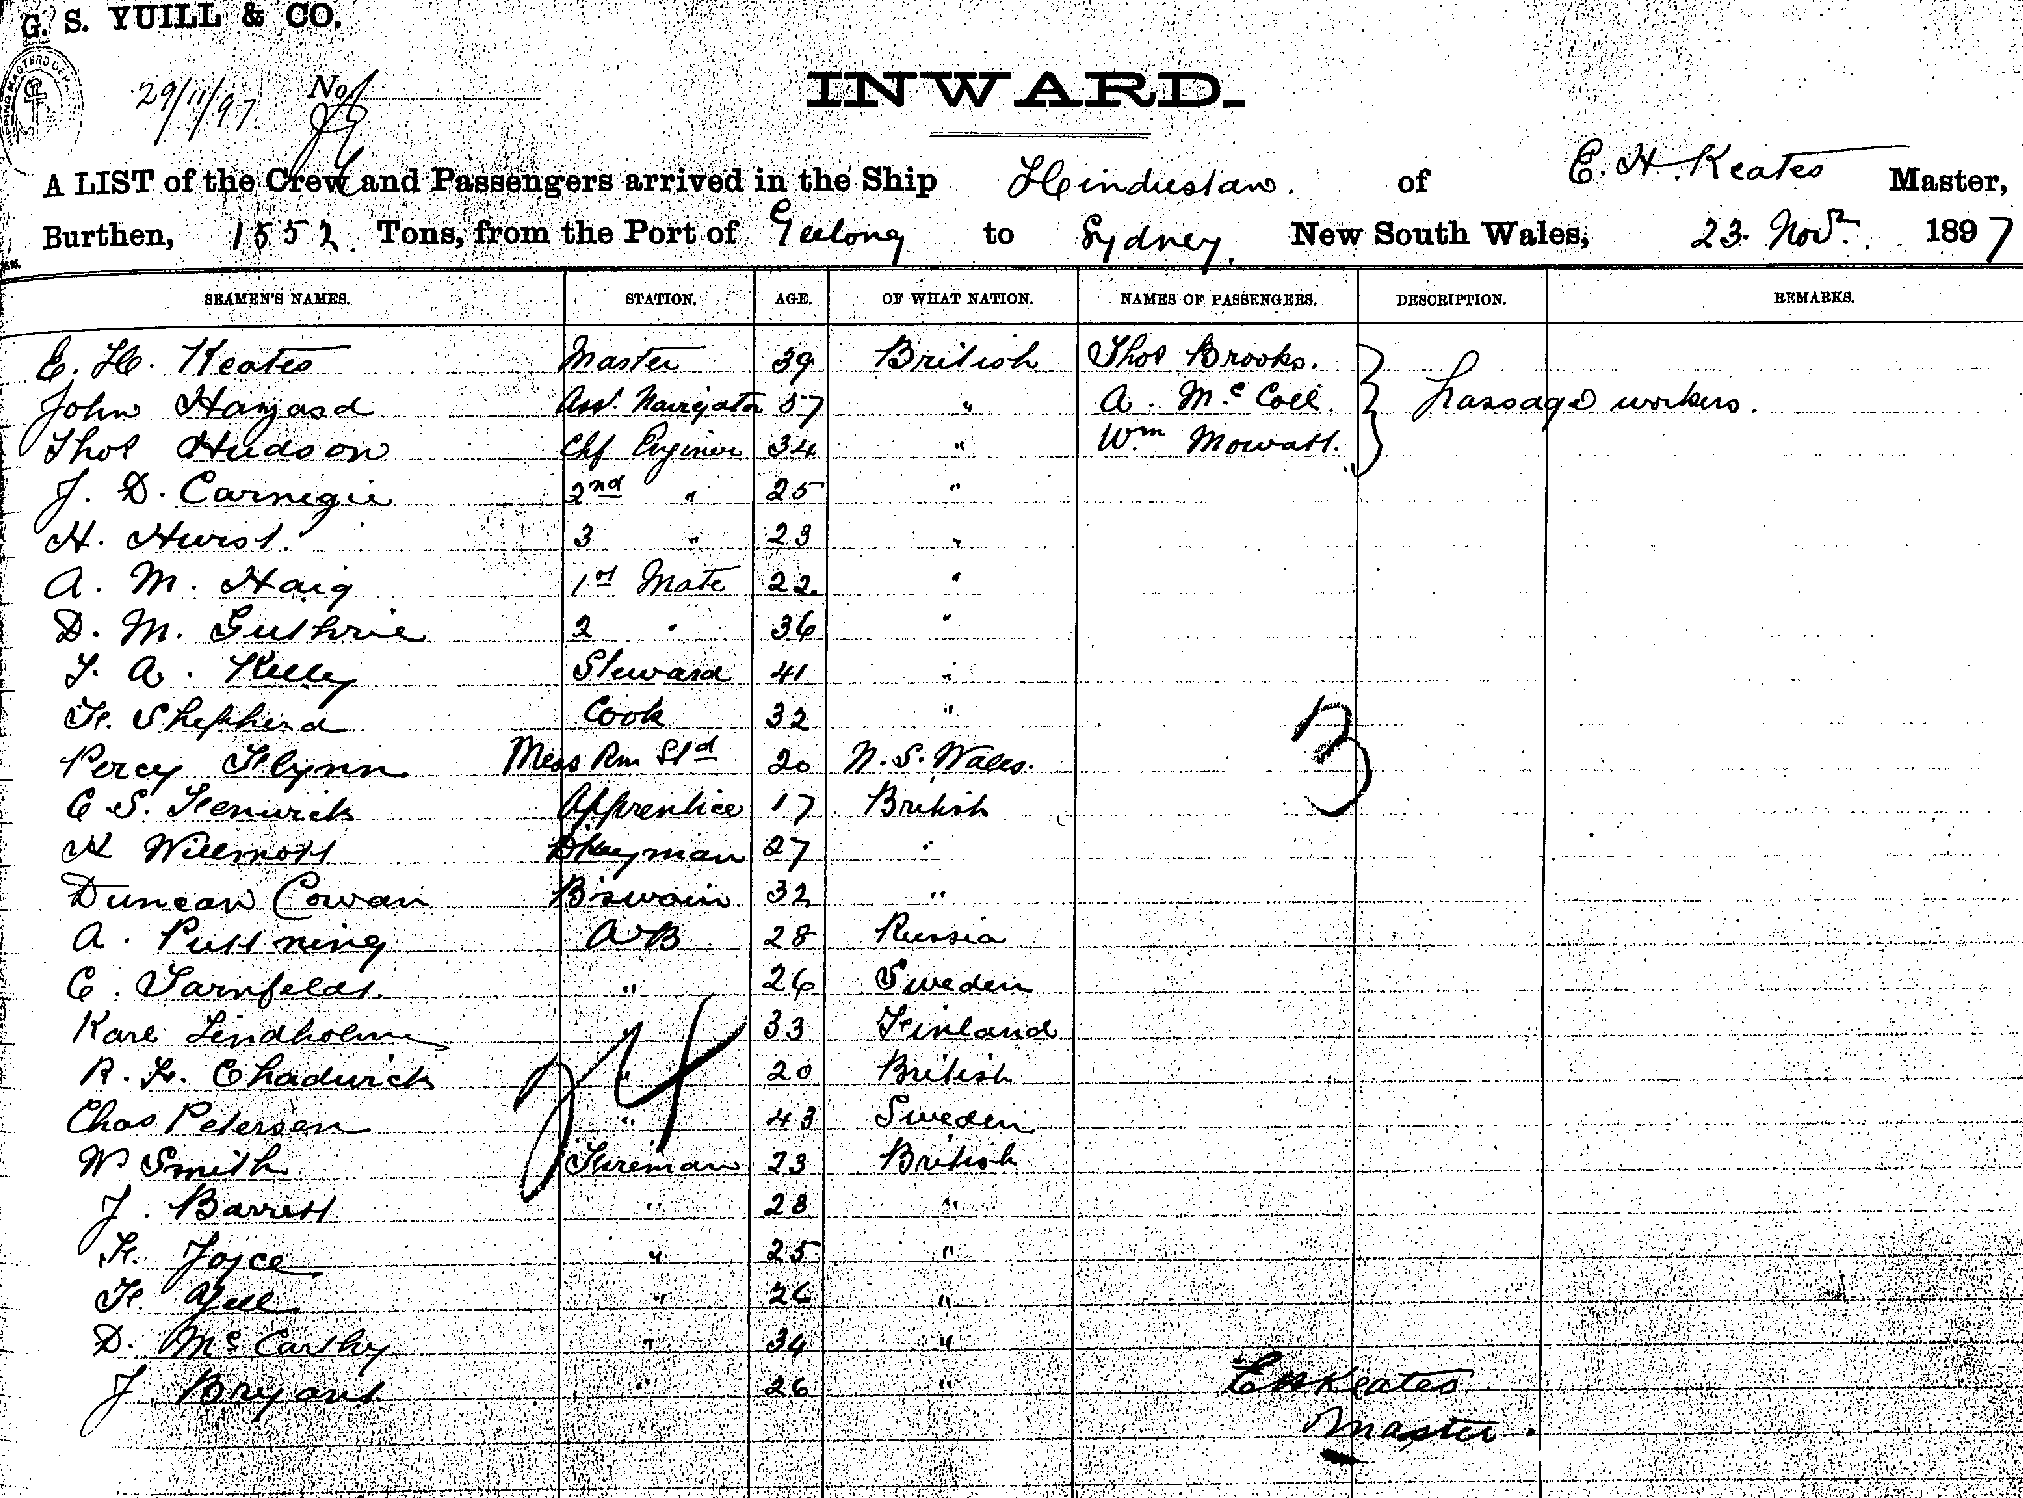 G. S. YUILL & CO.
29/11/97 No.
INWARD.
A LIST of the Crew and Passengers arrived in the Ship Hindustan. of E. H. Keates Master,
Burthen, 1552 Tons, from the Port of Geelong to Sydney. New South Wales, 23 Novr. 1897
SEAMEN'S NAMES. STATION. AGE. OF WHAT NATION. NAMES OF PASSENGERS. DESCRIPTION. REMARKS.
E. H. Keates Master 39 British Thos Brooks.
John Navigator 57 " A. McColl. Passage workers.
Thos Hudson Chf Engineer 34 " Wm Mowatt.
J. D. Carnegie 2nd " 25 "
H. Hurst. 3 " 23 "
A. M. Haig 1st Mate 22 "
D. M. Guthrie 2 " 36 "
T. A. Kelly Steward 41 "
F. Shepherd Cook 32 "
Percy Flynn Mess Rm Std 20 N. S. Wales.
C S. Fenwick Apprentice 17 British
H Willmott Dkeyman 27 "
Duncan Cowan B'swain 32 "
A. Puttning AB 28 Russia
C. " 26 Sweden
Karl Lindholm 33 Finland
R. F. Chadwick " 20 British
Chas Petersen " 43 Sweden
W Smith Fireman 23 British
J. Barrett " 28 "
F. Joyce " 25 "
F. Yull " 26 "
D. McCarthy " 34 "
J. Bryant " 26 "
24
3
EHKeates
Master.